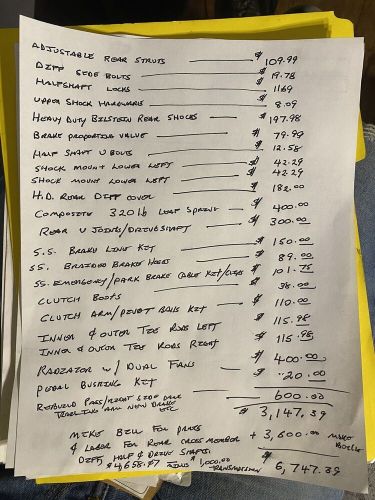 ADJUSTABLE REAR STRUTS $ 109.99
DIFF SIDE BOLTS $ 19.78
HALFSHAFT LOCKS $ 1169
UPPER SHOCK HARDWARE $ 8.09
HEAVY DUTY BILSTEIN REAR SHOCKS $ 197.98
BRAKE PROPORTING VALVE $ 79.99
HALF SHAFT U BOLTS $ 12.58
SHOCK MOUNT LOWER LEFT $ 42.29
SHOCK MOUNT LOWER LEFT $ 42.29
H.D. REAR DIFF COVER $ 182.00
COMPOSITE 320 lb LEAF SPRING $ 400.00
REAR U JOINTS/DRIVESHAFT $ 300.00
S.S. BRAKE LINE KIT $ 150.00
SS. BRAIDED BRAKE HOSES $ 89.00
SS. EMERGENCY/PARK BRAKE CABLE KIT/CLIPS $ 101.75
CLUTCH BOOTS $ 38.00
CLUTCH ARM/PIVOT BALL KIT $ 110.00
INNER & OUTER TIE RODS LEFT $ 115.98
INNER & OUTER TIE RODS RIGHT $ 115.98
RADIATOR W/ DUAL FANS $ 400.00
PEDAL BUSHING KIT $ 20.00
REBUILD PASS/RIGHT SIDE 600.00
TRAILING ARM NEW ETC
$ 3,147.39
MIKE BILL FOR PARTS + 3,600.00
& LABOR FOR REAR CROSS MEMBER
DIFF, HALF & DRIVE SHAFTS. $ 6,747.39
$ 1,000.00
TRANSMISSION